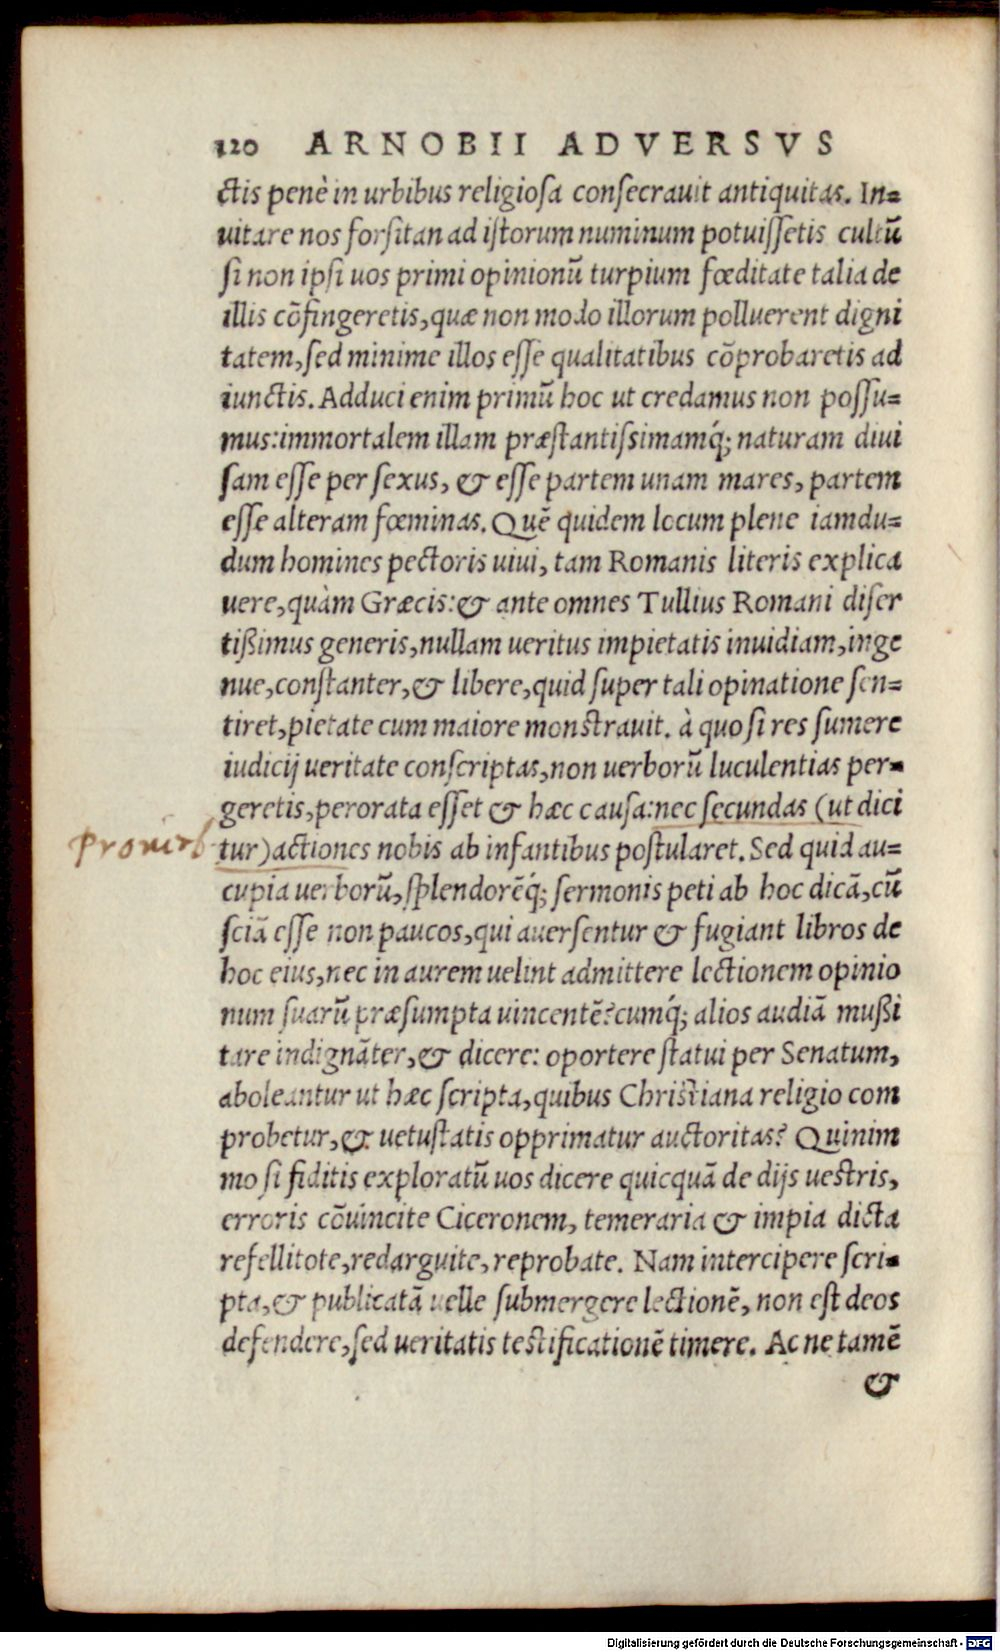 120 ARNOBII ADVERSVS
ctis penè in urbibus religiosa consecrauit antiquitas. In=
uitare nos forsitan ad istorum numinum potuissetis cultũ
si non ipsi uos primi opinionũ turpium fœditate talia de
illis cõfingeretis, quæ non modo illorum polluerent digni
tatem, sed minime illos esse qualitatibus cõprobaretis ad
iunctis. Adduci enim primũ hoc ut credamus non possu=
mus: immortalem illam præstantissimamq́; naturam diui
sam esse per sexus, & esse partem unam mares, partem
esse alteram fœminas. Quẽ quidem locum plene iamdu=
dum homines pectoris uiui, tam Romanis literis explica
uere, quàm Græcis: & ante omnes Tullius Romani diser
tißimus generis, nullam ueritus impietatis inuidiam, inge
nue, constanter, & libere, quid super tali opinatione sen=
tiret, pietate cum maiore monstrauit. à quo si res sumere
iudicij ueritate conscriptas, non uerborũ luculentias per=
geretis, perorata esset & hæc causa: nec secundas (ut dici
prouerb
tur) actiones nobis ab infantibus postularet. Sed quid au=
cupia uerborũ, splendorẽq́; sermonis peti ab hoc dicã, cũ
sciã esse non paucos, qui auersentur & fugiant libros de
hoc eius, nec in aurem uelint admittere lectionem opinio
num suarũ præsumpta uincentẽ? cumq́; alios audiã mußi
tare indignãter, & dicere: oportere statui per Senatum,
aboleantur ut hæc scripta, quibus Christiana religio com
probetur, & uetustatis opprimatur auctoritas? Quinim
mo si fiditis exploratũ uos dicere quicquã de dijs uestris,
erroris cõuincite Ciceronem, temeraria & impia dicta
refellitote, redarguite, reprobate. Nam intercipere scri=
pta, & publicatã uelle submergere lectionẽ, non est deos
defendere, sed ueritatis testificationẽ timere. Ac ne tamẽ
&
Digitalisierung gefördert durch die Deutsche Forschungsgemeinschaft - DFG